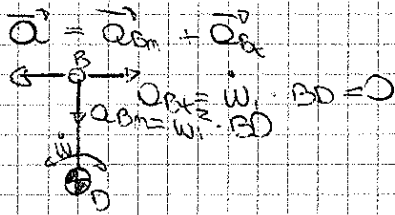 a⃗ = a⃗Bn + a⃗Bt
B
aBt = ẇ₁ · BD = 0
aBn = w₁² · BD
ẇ
D